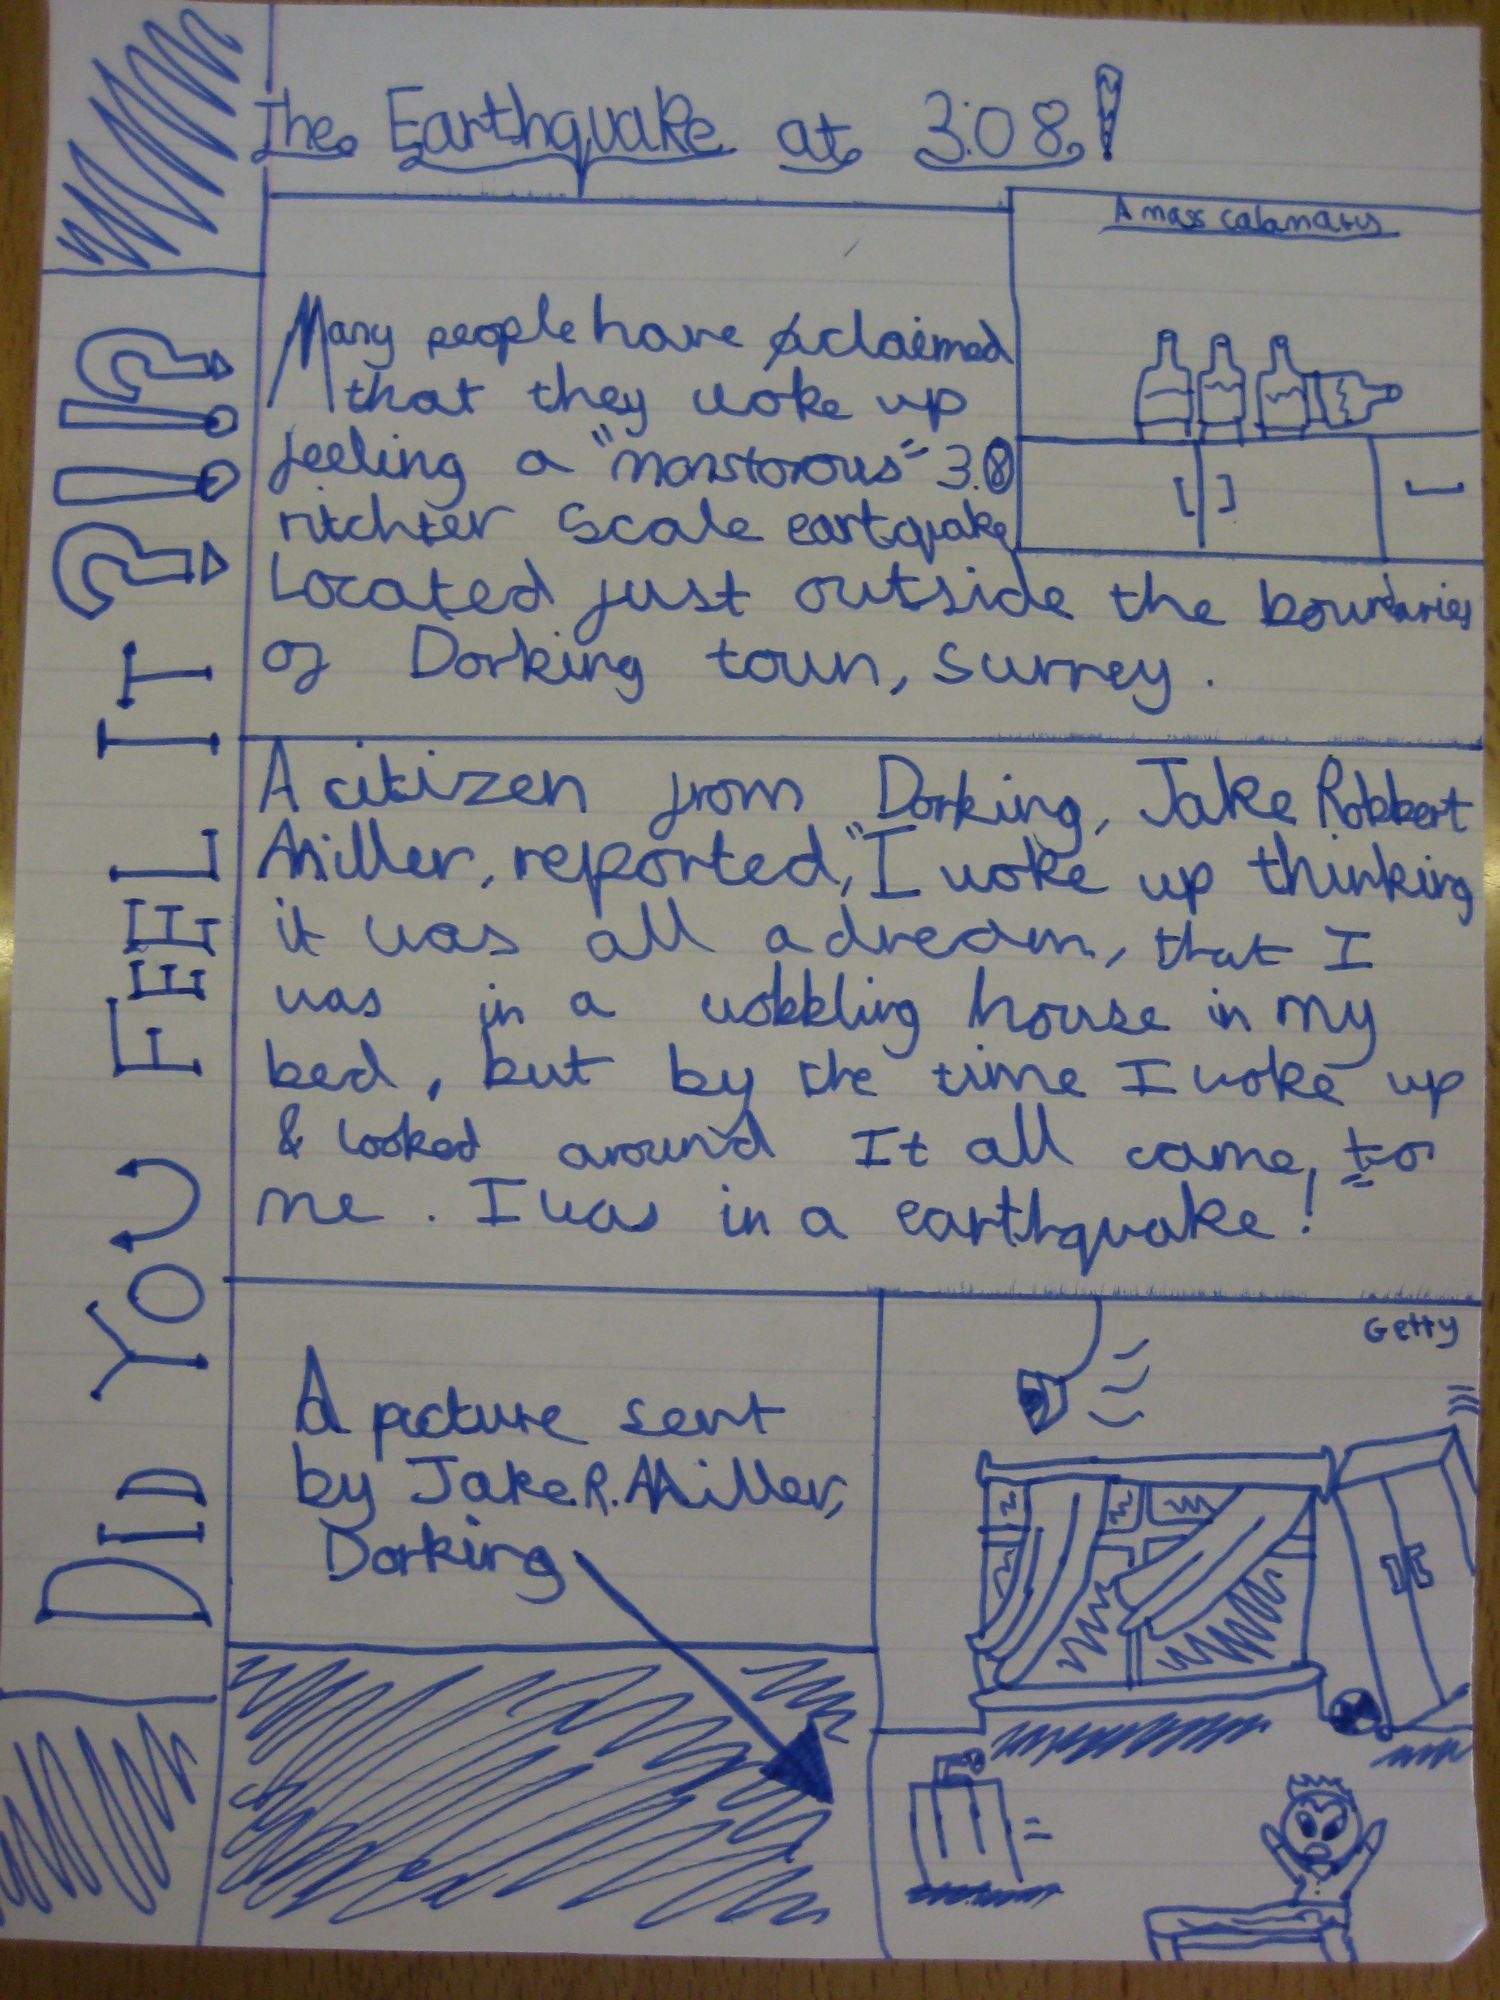 The Earthquake at 3:08!
A mass calamatys
Many people have claimed
that they woke up
feeling a "monstorous" 3.0
ritchter scale eartquake
Located just outside the boundaries
of Dorking town, Surrey.
A citizen from Dorking, Jake Robbert
Miller, reported, "I woke up thinking
it was all a dream, that I
was in a wobbling house in my
bed, but by the time I woke up
& looked around It all came to
me. I was in a earthquake!
DID YOU FEEL IT?!!?
A picture sent
by Jake.R.Miller,
Dorking
Getty